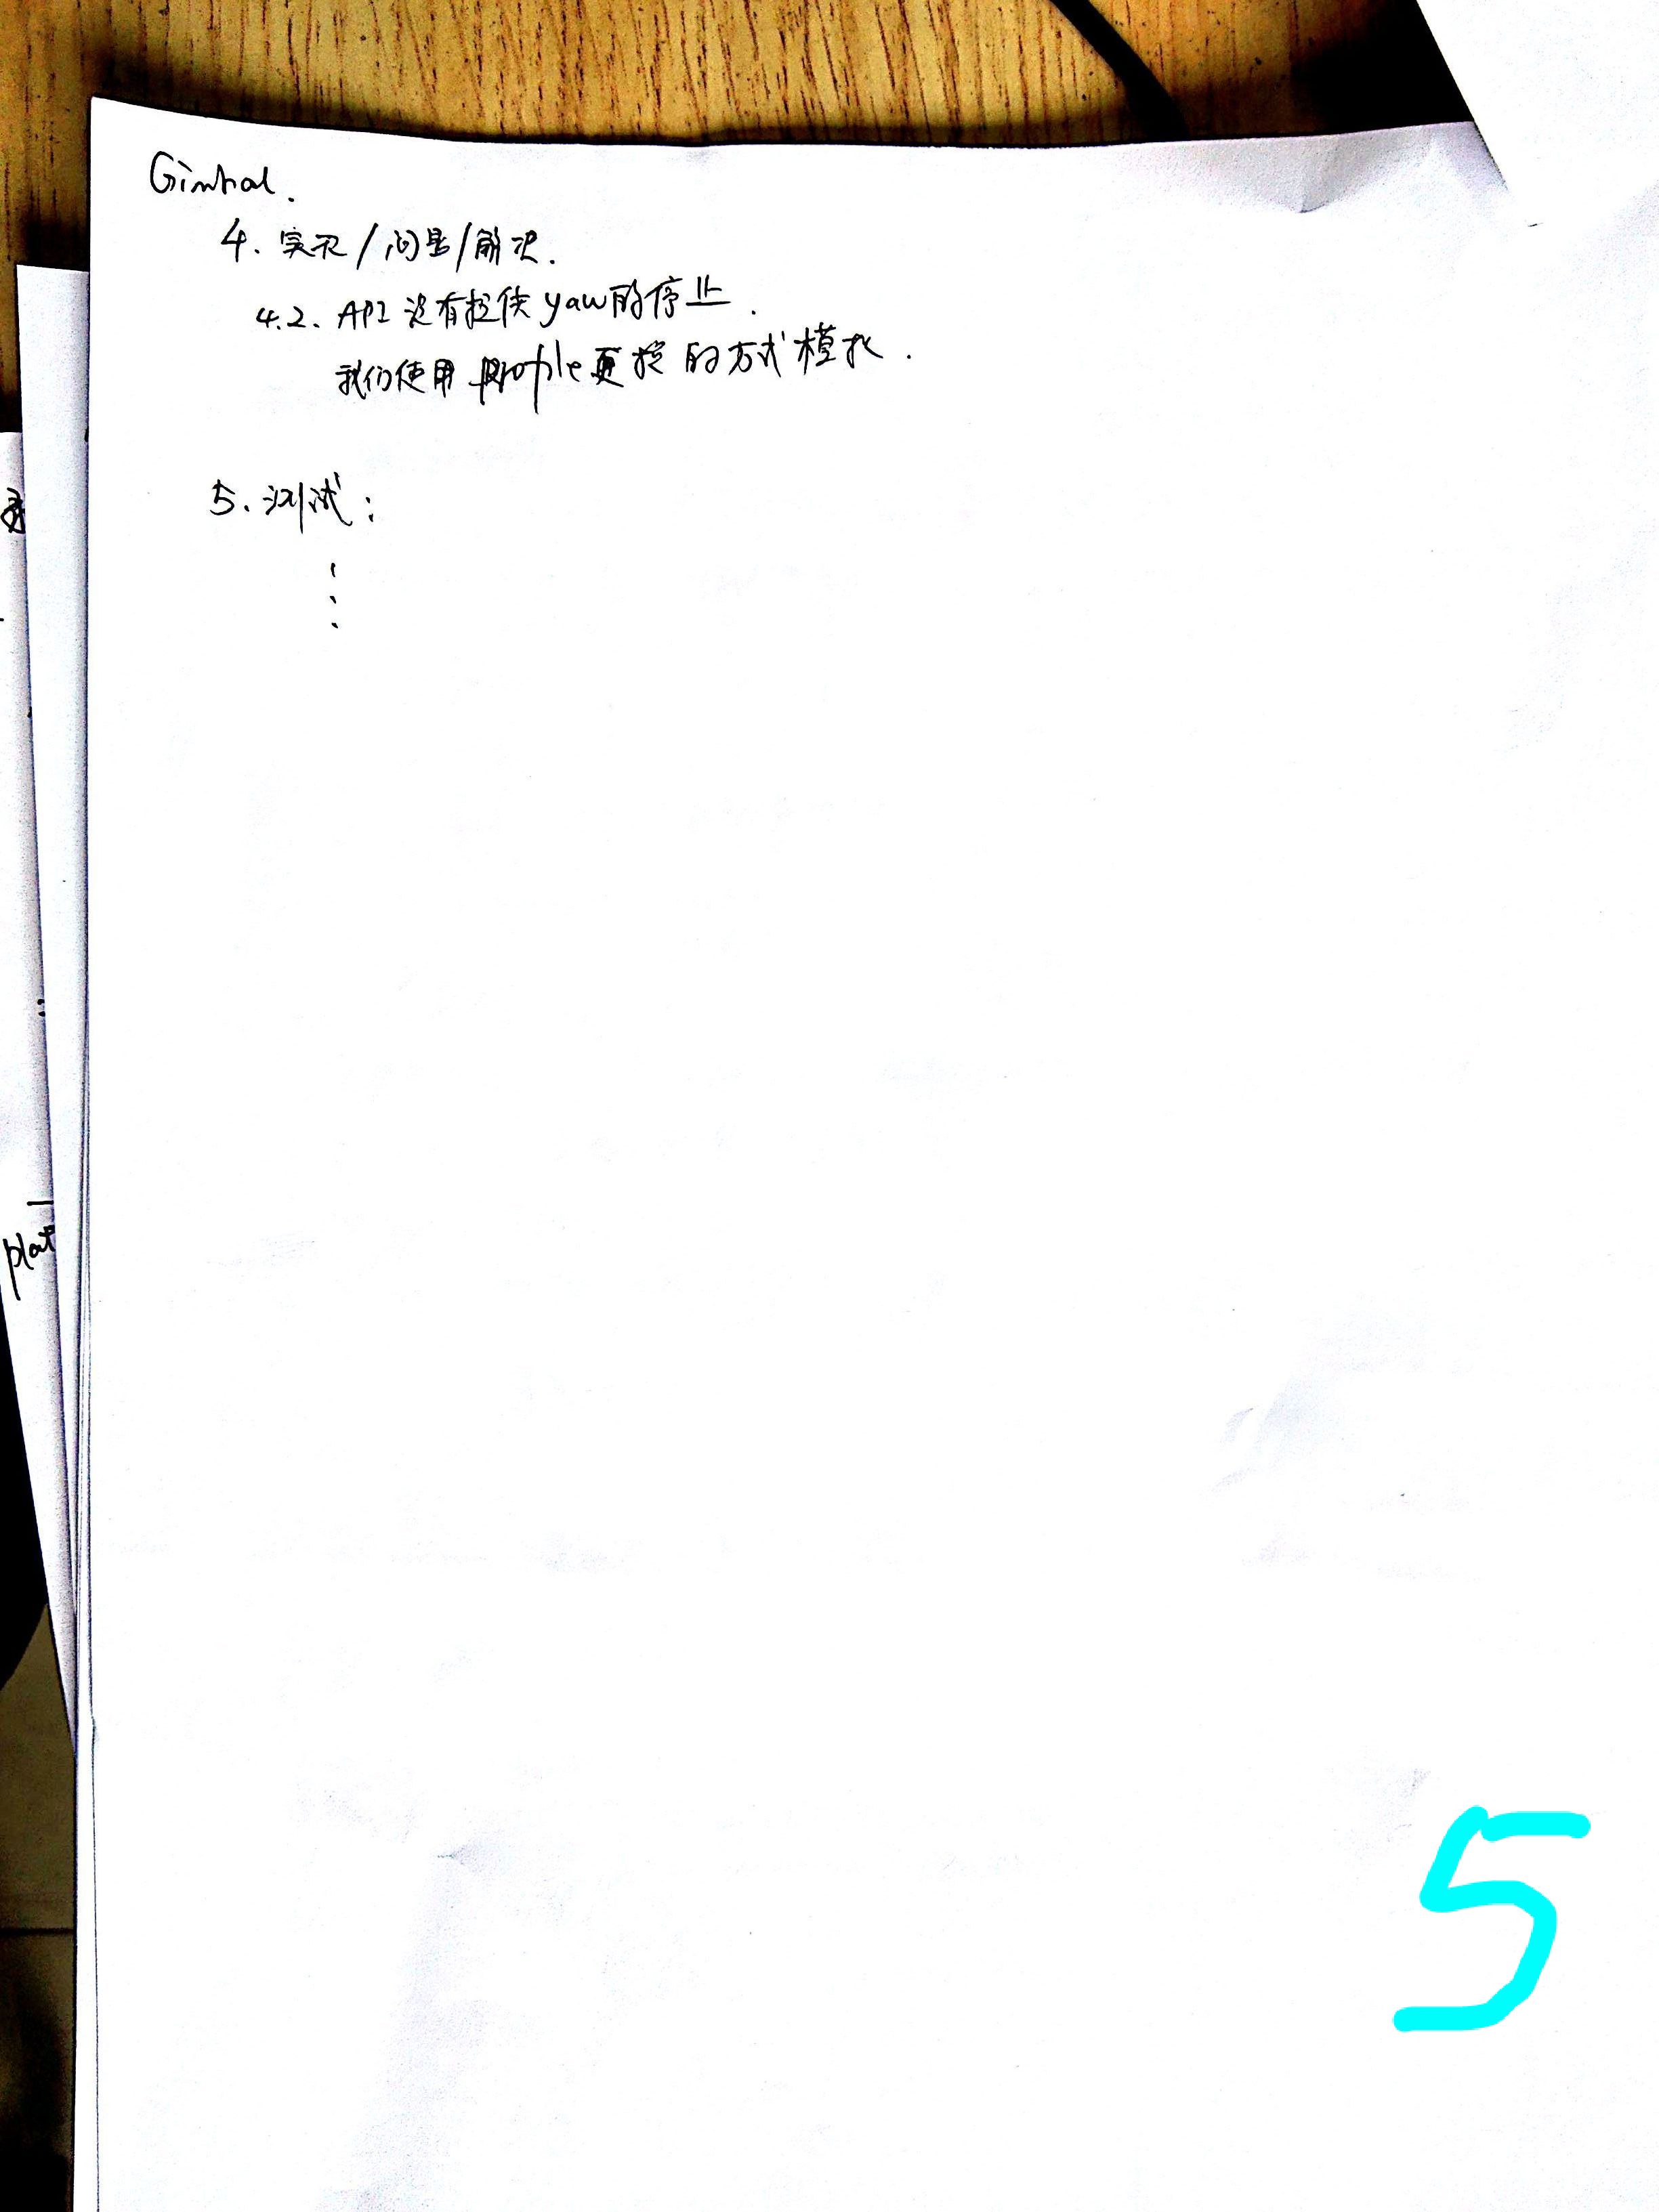 Gimbal.
4. 实现/问题/解决.
4.2. API 没有提供 yaw的停止.
我们使用 profile更换的方式模拟.
5. 测试:
plat
5